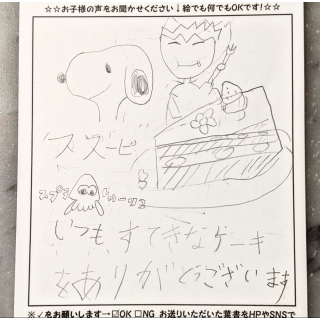 ☆☆お子様の声をお聞かせください↓絵でも何でもOKです!☆☆
スズーピ
スプラトゥーン2
いつも、すてきなケーキ
をありがとうございます
※✓をお願いします→☑OK □NG お送りいただいた葉書をHPやSNSで